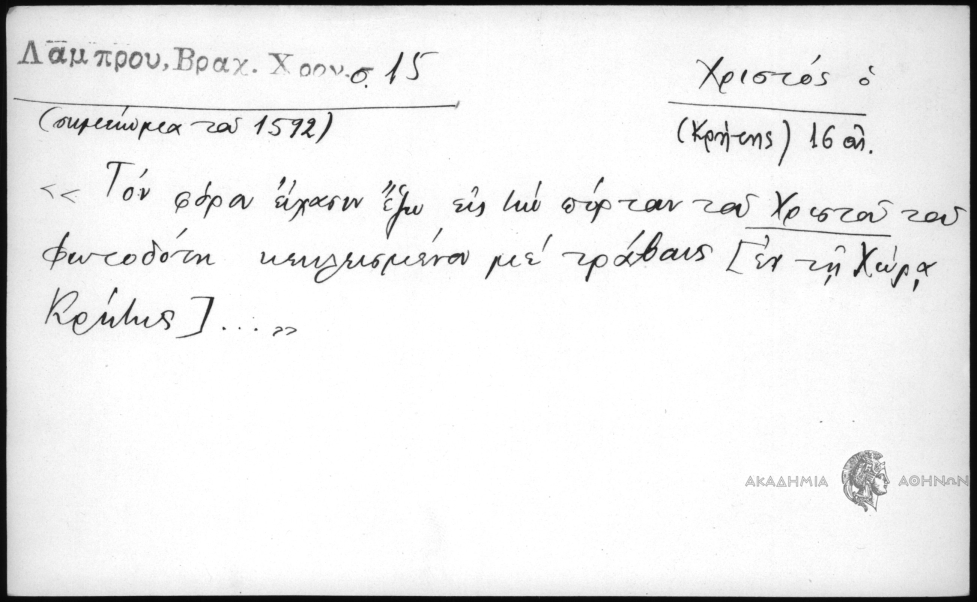 Λάμπρου, Βραχ. Χρον. σ. 15
Χριστός ὁ
(σημείωμα τοῦ 1592)
(Κρήτης) 16 αἰ.
<< Τόν φόρον εἴχασιν ἔξω εἰς τήν πόρταν τοῦ Χριστοῦ τοῦ
Φωτοδότη κεκλεισμένον μέ τράβαις [ἐν τῇ Χώρᾳ
Κρήτης] ....>>
ΑΚΑΔΗΜΙΑ ΑΘΗΝΩΝ